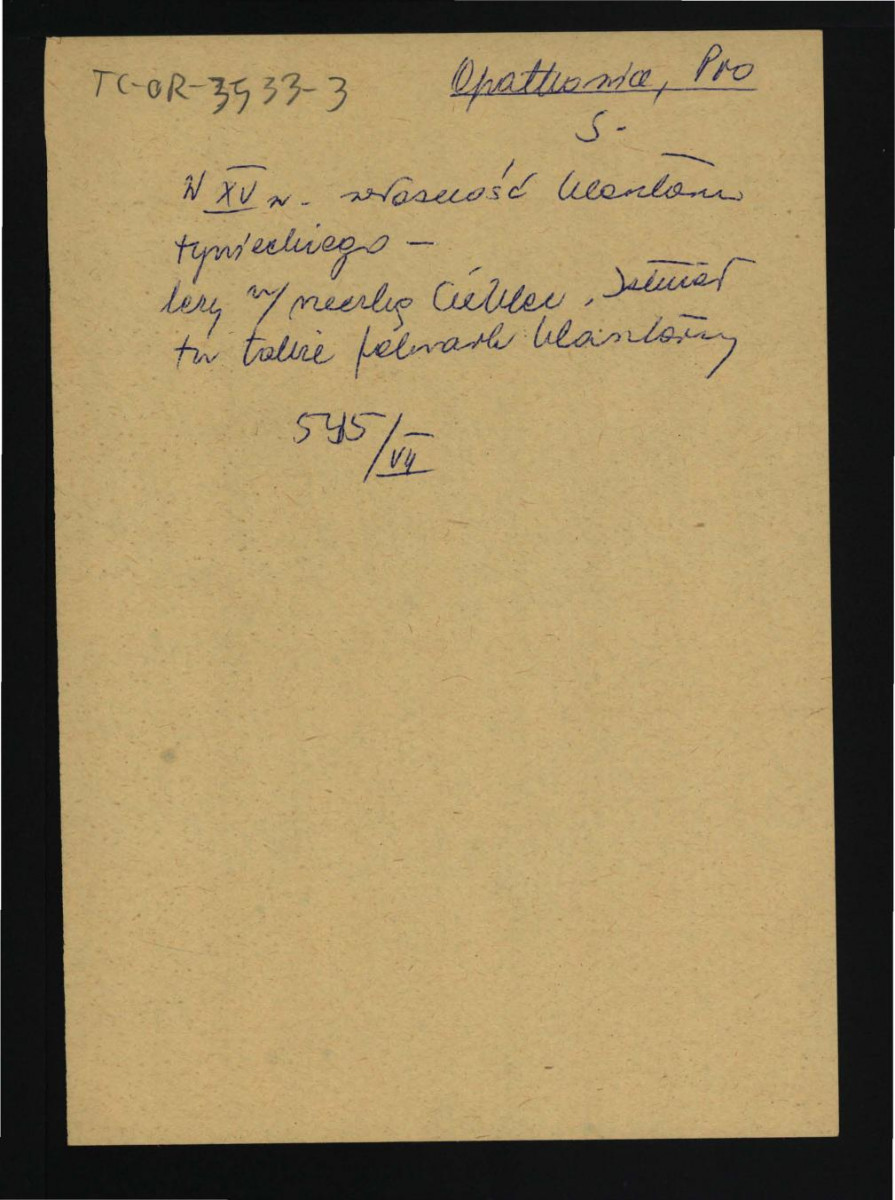 TC-OR-3533-3
Opatkowice, Pro
S-
W XV w. własność klasztoru
tynieckiego —
leży n/ rzeczką Cieklec. Istniał
tu także folwark klasztorny
545/VII